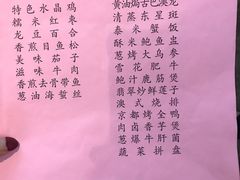 特色水晶鸡
糯米红枣
龙豆百合
香煎目鱼松
美味茄子
滋味牛肉
香煎去骨带鱼
葱油海蜇丝
黄油焗古巴澳龙
清蒸东星斑
泰米蟹饭
酥米鲍鱼盅
葱烤大乌参
雪花肥牛
鲍汁鹿筋煲
翡翠炒鲜莲子
澳式烧排
京都烤全鸭
肉卤香干煲
葱爆牛肝菌
蔬菜拼盘